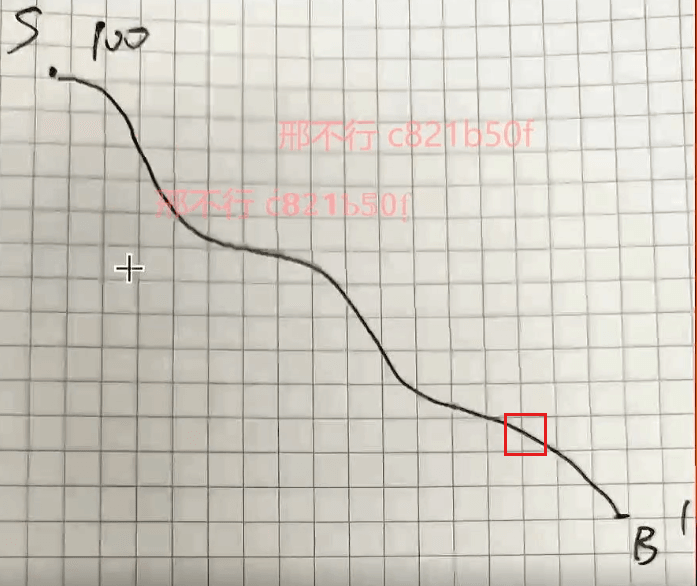 S 100
邢不行 c821b50f
邢不行 c821b50f
B